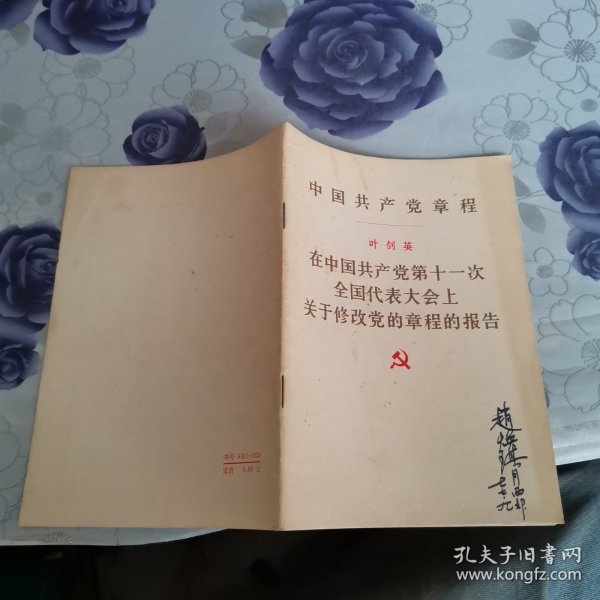 中国共产党章程
叶剑英
在中国共产党第十一次
全国代表大会上
关于修改党的章程的报告
书号 3001·1624
定价 0.10 元
孔夫子旧书网
www.kongfz.com